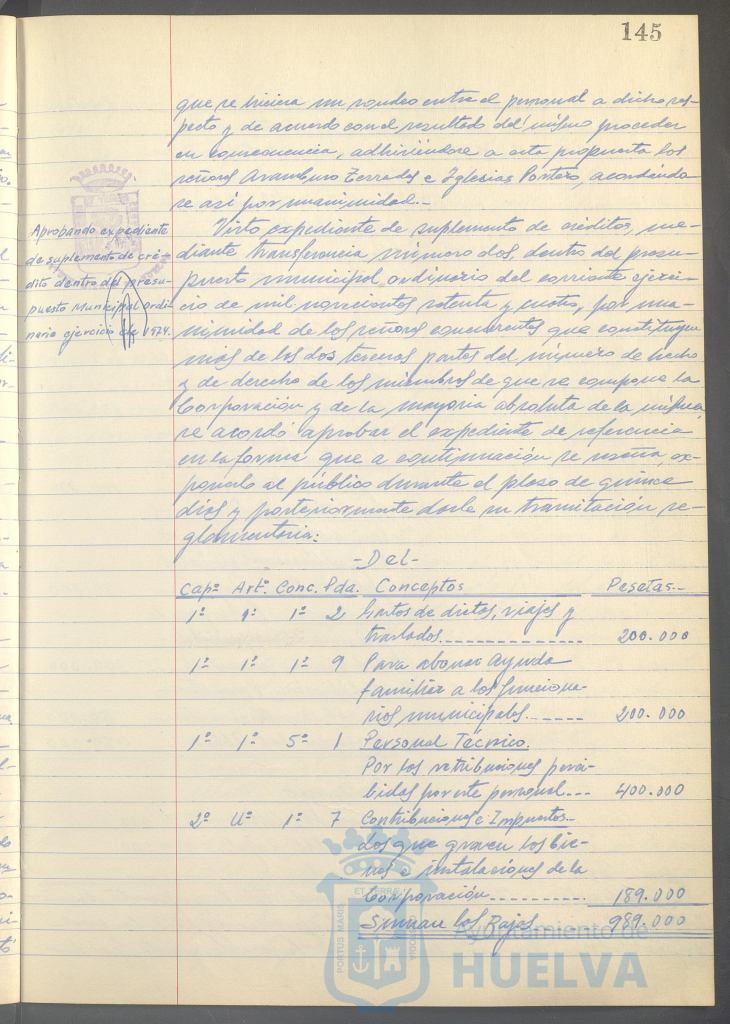 145
que se hiciera un sondeo entre el personal a dicho res-
pecto y de acuerdo con el resultado del mismo proceder
en consecuencia, adhiriéndose a esta propuesta los
señores Aramburo Terrades e Iglesias Portero, acordándo
se así por unanimidad.-
Aprobando expediente
de suplemento de cré-
dito dentro del presu-
puesto Municipal ordi-
nario ejercicio de 1974.
Visto expediente de suplemento de créditos, me-
diante transferencia número dos, dentro del presu-
puesto municipal ordinario del corriente ejerci-
cio de mil novecientos setenta y cuatro, por una-
nimidad de los señores concurrentes que constituyen
más de las dos terceras partes del número de hecho
y de derecho de los miembros de que se compone la
Corporación y de la mayoría absoluta de la misma,
se acordó aprobar el expediente de referencia
en la forma que a continuación se reseña, ex-
ponerlo al público durante el plazo de quince
días y posteriormente darle su tramitación re-
glamentaria:
-Del-
Capº Artº. Conc. Pda. Conceptos Pesetas.-
1º 1º 1º 2 Gastos de dietas, viajes y
traslados.------------- 200.000
1º 1º 1º 9 Para abonar Ayuda
familiar a los funciona-
rios municipales.------ 200.000
1º 1º 5º 1 Personal Técnico.
Por las retribuciones perci-
bidas por este personal.--- 400.000
2º Uº 1º 7 Contribuciones e Impuestos.-
Los que graven los bie-
nes e instalaciones de la
Corporación.----------- 189.000
Suman las Bajas 989.000
PORTUS MARIS ET TERRAE CUSTODIA
Ayuntamiento de
HUELVA